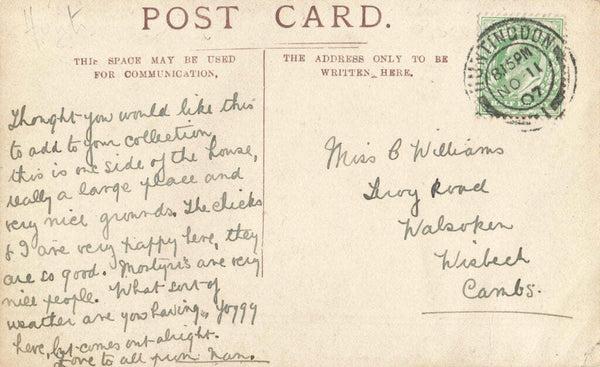 Hist
POST CARD.
THIS SPACE MAY BE USED
FOR COMMUNICATION.
THE ADDRESS ONLY TO BE
WRITTEN HERE.
HUNTINGDON
8.15PM
NO 11
07
Thought you would like this
to add to your collection,
this is one side of the house,
really a large place and
very nice grounds. The chicks
& I are very happy here, they
are so good. are very
nice people. What sort of
weather are you having, foggy
here, but comes out alright.
Love to all from Nan.
Miss B Williams
Troy Road
Walsoken
Wisbech
Cambs.